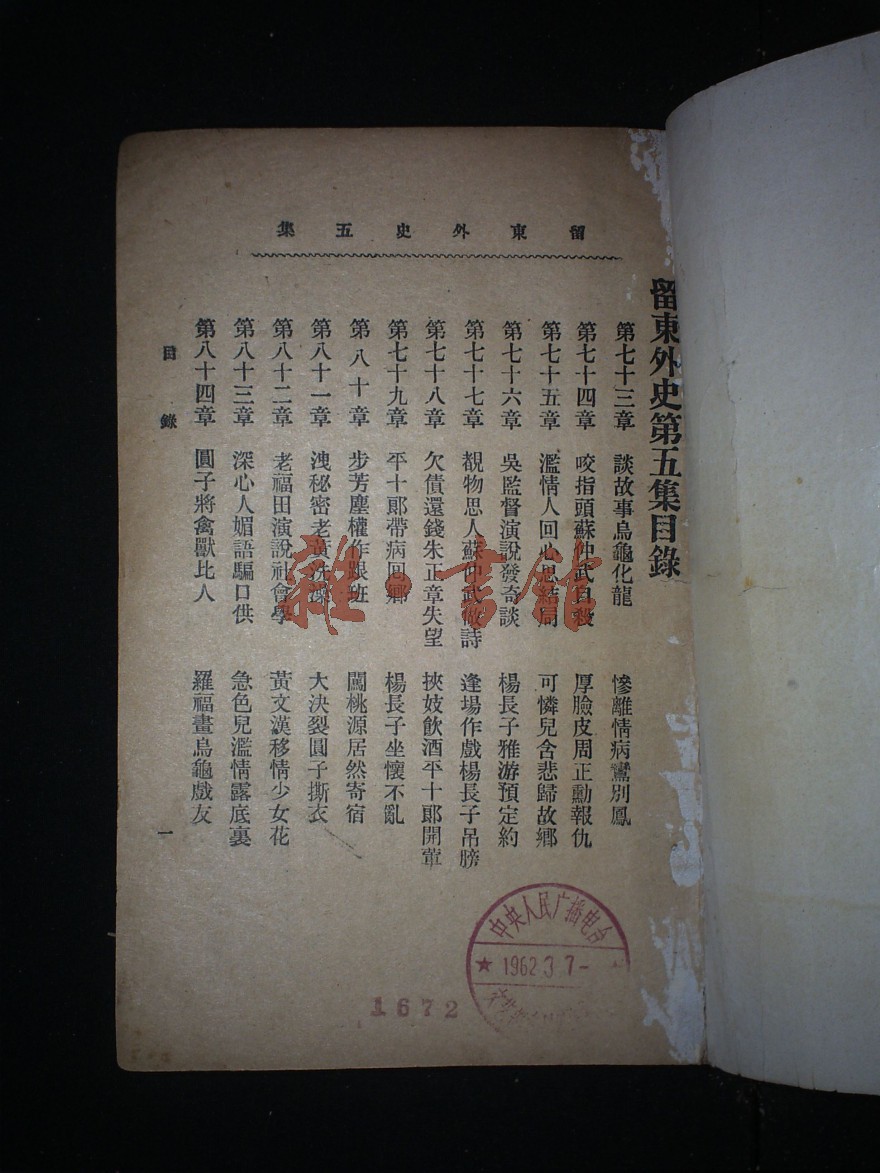 留東外史五集
留東外史第五集目錄
第七十三章 談故事烏龜化龍 慘離情病鸞別鳳
第七十四章 咬指頭蘇仲武自殺 厚臉皮周正勳報仇
第七十五章 濫情人回心思結局 可憐兒含悲歸故鄉
第七十六章 吳監督演說發奇談 楊長子雅游預定約
第七十七章 覩物思人蘇仲武做詩 逢場作戲楊長子吊膀
第七十八章 欠債還錢朱正章失望 挾妓飲酒平十郎開葷
第七十九章 平十郎帶病回鄉 楊長子坐懷不亂
第八十章 步芳塵權作跟班 闖桃源居然寄宿
第八十一章 洩秘密老黃洗澡 大決裂圓子撕衣
第八十二章 老福田演說社會學 黃文漢移情少女花
第八十三章 深心人媚語騙口供 急色兒濫情露底裏
第八十四章 圓子將禽獸比人 羅福畫烏龜戲友
目錄
一
雜·書館
中央人民广播电台
1962 3 7
1672